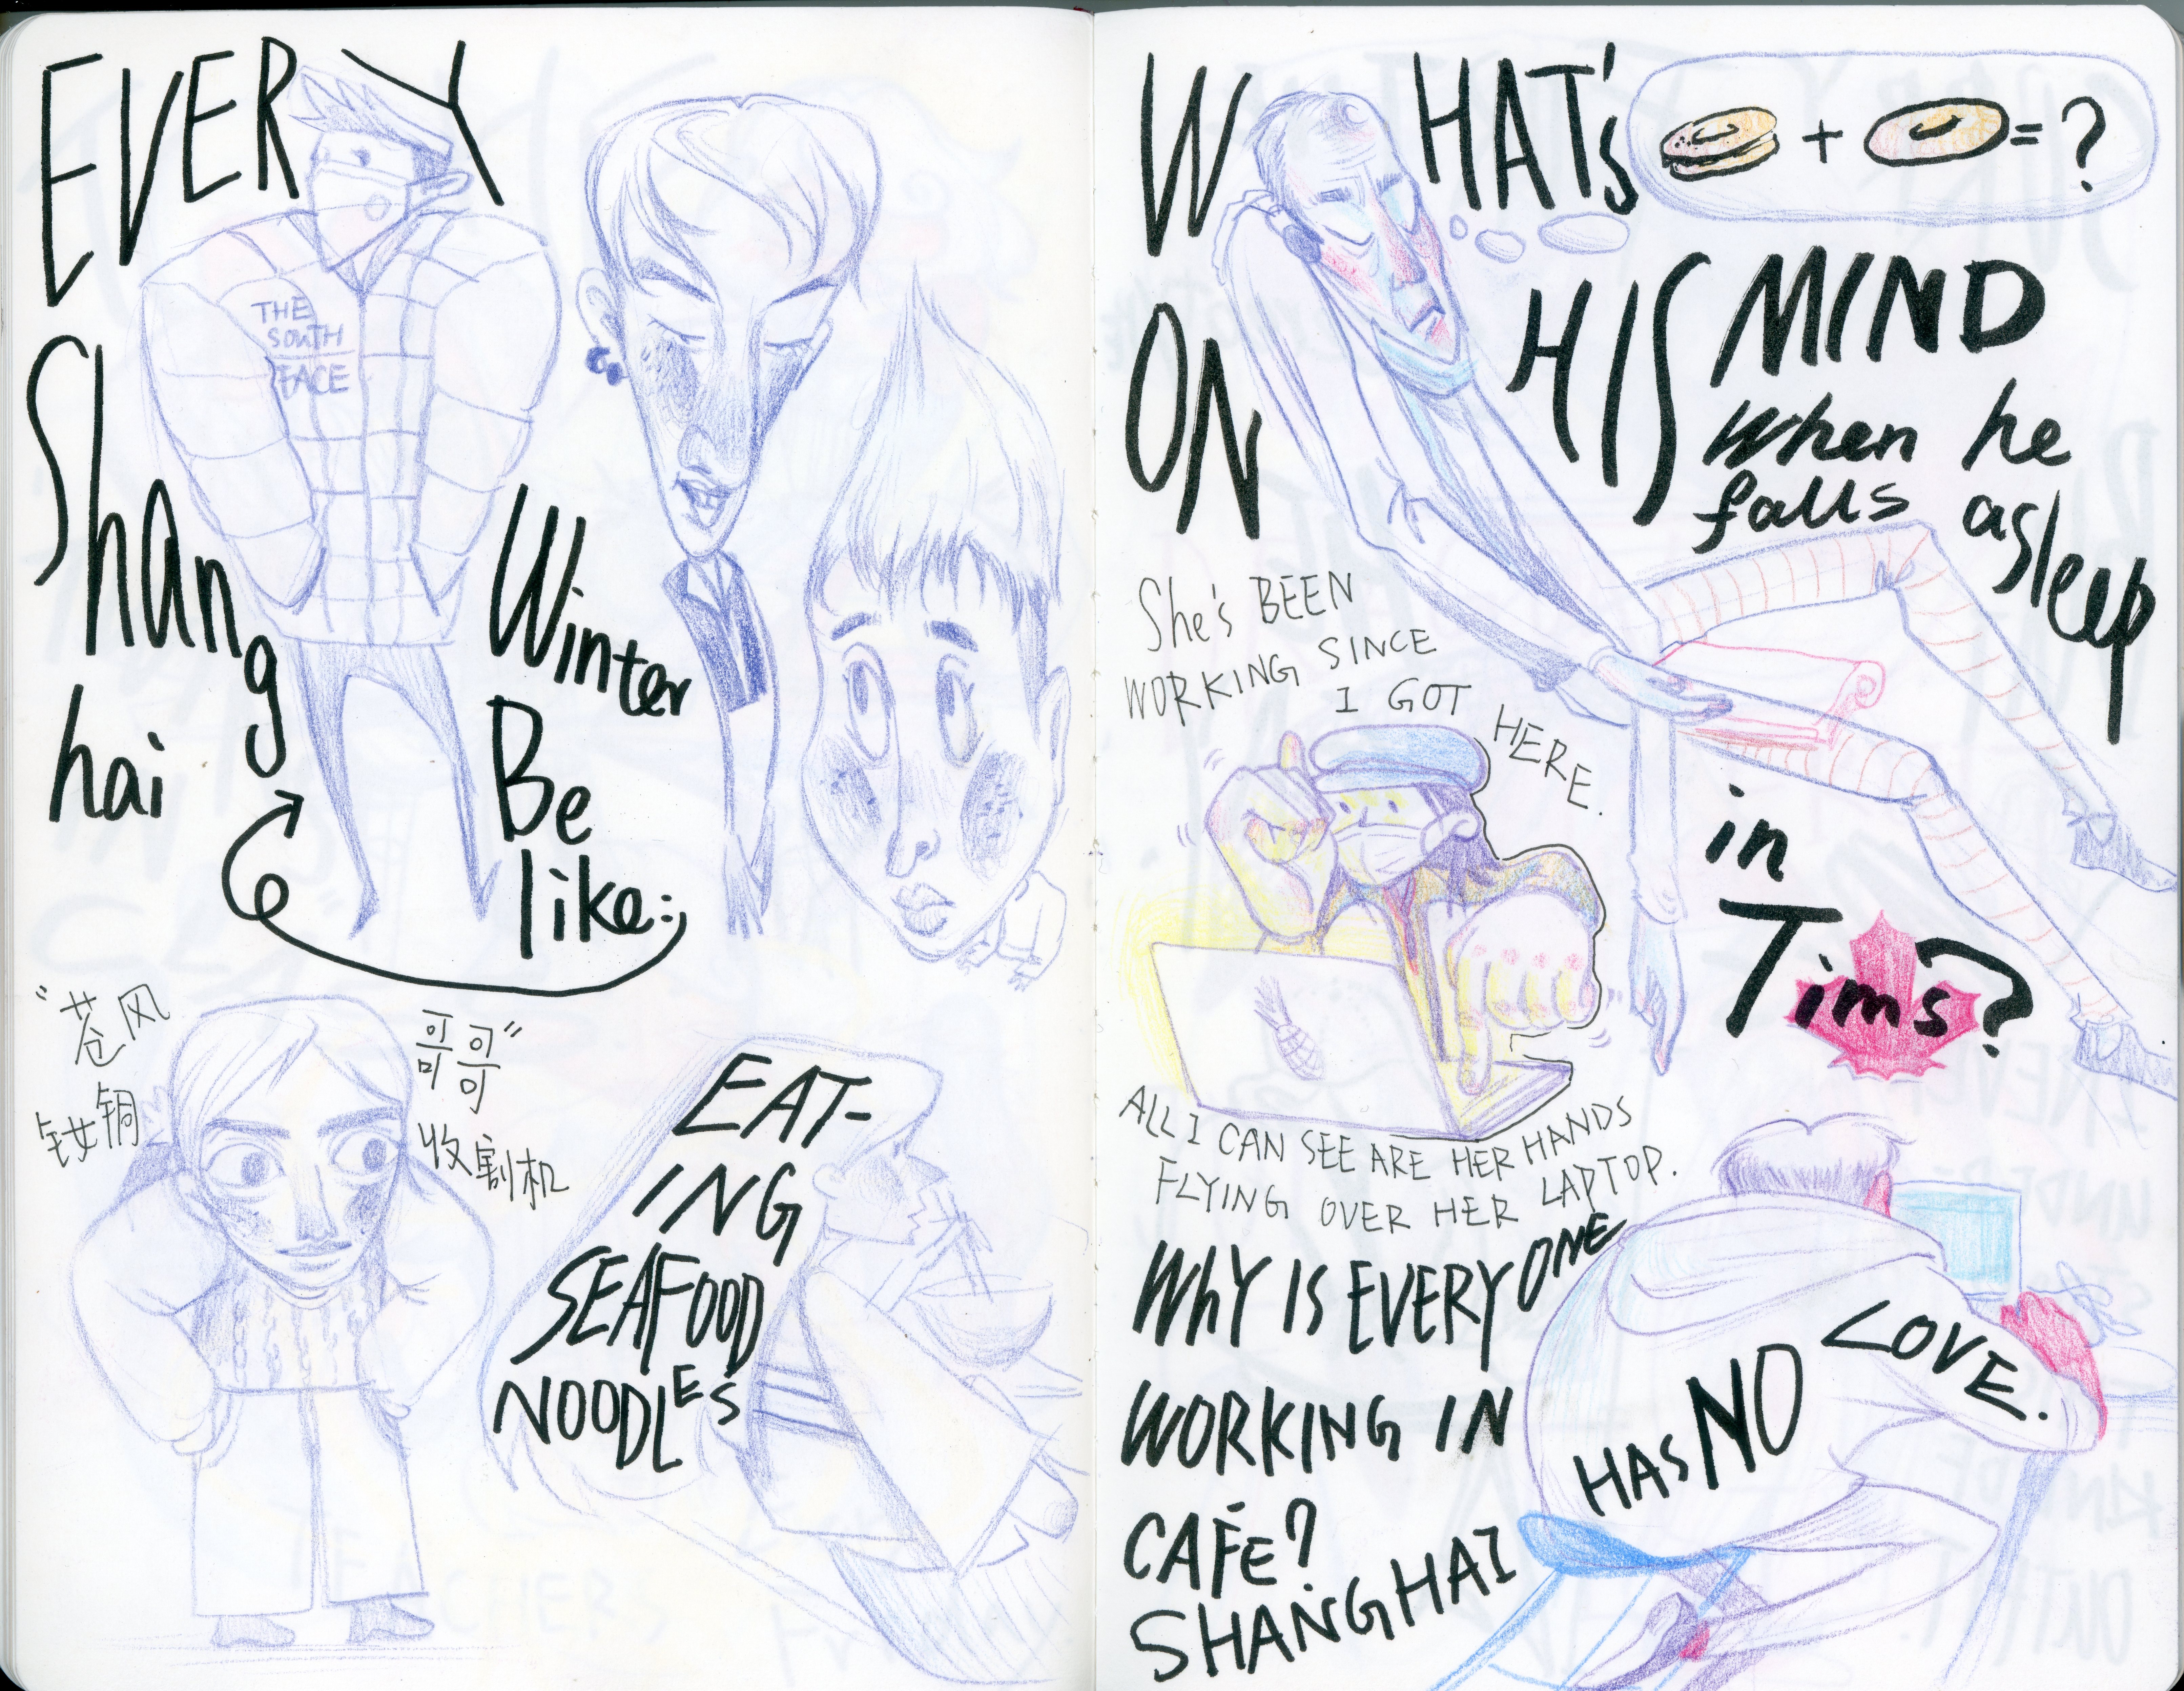 EVERY
Shang
hai
Winter
Be
like:
THE
SOUTH
FACE
"苍风
哥哥"
钕铜
收割机
EAT-
ING
SEAFOOD
NOODLES
WHAT's
+ = ?
ON HIS MIND
When he
falls asleep
in
Tims?
She's BEEN
WORKING SINCE
I GOT HERE.
ALL I CAN SEE ARE HER HANDS
FLYING OVER HER LAPTOP.
WhY IS EVERYONE
WORKING IN
CAFE?
SHANGHAI
HAS NO LOVE.